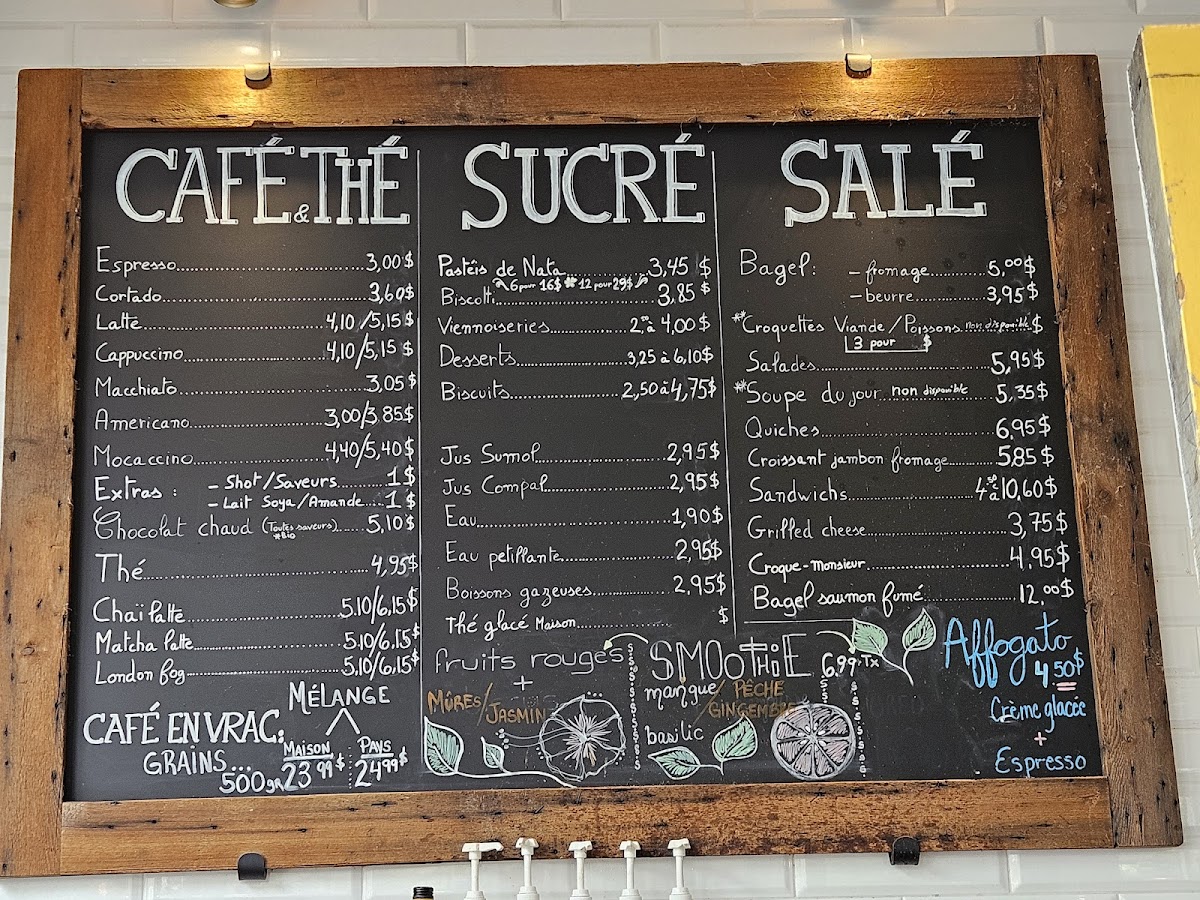 CAFÉ & THÉ
Espresso 3,00$
Cortado 3,60$
Latte 4,10/5,15$
Cappuccino 4,10/5,15$
Macchiato 3,05$
Americano 3,00/3,85$
Mocaccino 4,40/5,40$
Extras : - Shot/Saveurs 1$
- Lait Soya/Amande 1$
Chocolat chaud (Toutes saveurs) 5,10$
*Bio
Thé 4,95$
Chaï latte 5,10/6,15$
Matcha latte 5,10/6,15$
London fog 5,10/6,15$
MÉLANGE
CAFÉ EN VRAC:
GRAINS...
MAISON PAYS
500gr 23 99$ 24 99$
SUCRÉ
Pastéis de Nata 3,45$
6 pour 16$ * 12 pour 29$
Biscotti 3,85$
Viennoiseries 2,00 à 4,00$
Desserts 3,25 à 6,10$
Biscuits 2,50 à 4,75$
Jus Sumol 2,95$
Jus Compal 2,95$
Eau 1,90$
Eau petillante 2,95$
Boissons gazeuses 2,95$
Thé glacé Maison $
SALÉ
Bagel: - fromage 5,00$
- beurre 3,95$
**Croquettes Viande/Poissons non disponible $
3 pour $
Salades 5,95$
**Soupe du jour non disponible 5,35$
Quiches 6,95$
Croissant jambon fromage 5,85$
Sandwichs 4,50 à 10,60$
Grilled cheese 3,75$
Croque-Monsieur 4,95$
Bagel saumon fumé 12,00$
SMOOTHIE 6,99+Tx
fruits rouges
+
MÛRES/
JASMIN
mangue/ PÊCHE
GINGEMBRE
basilic
Affogato
4,50$
Crème glacée
+
Espresso